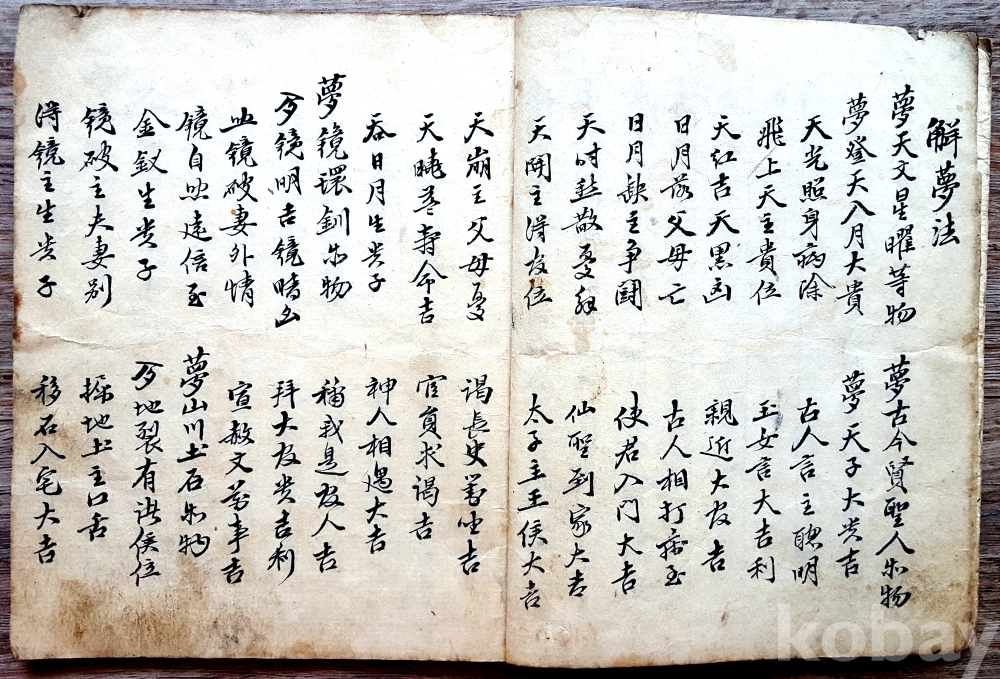 解夢法
夢天文星曜等物
夢登天入月大貴
天光照身病除
飛上天主貴位
天紅吉天黑凶
日月落父母亡
日月缺主爭鬪
天時散憂
天開主得官位
天崩主父母憂
天曉益壽命吉
吞日月生贵子
夢鏡環釧等物
鏡明吉鏡暗凶
鏡破妻外情
鏡自照遠信至
金釵生贵子
鏡破主夫妻別
得鏡主生贵子
夢古今賢聖人等物
夢天子大贵吉
古人言主聰明
玉女言大吉利
親近大官吉
古人相打病至
使君入门大吉
仙聖到家大吉
太子主王侯大吉
謁長史坐吉
官員求謁吉
神人相遇大吉
稱我是官人吉
拜大官贵吉利
宣赦文萬事吉
夢山川土石等物
地裂有諸侯位
掘地土主口舌
移石入宅大吉
kobay